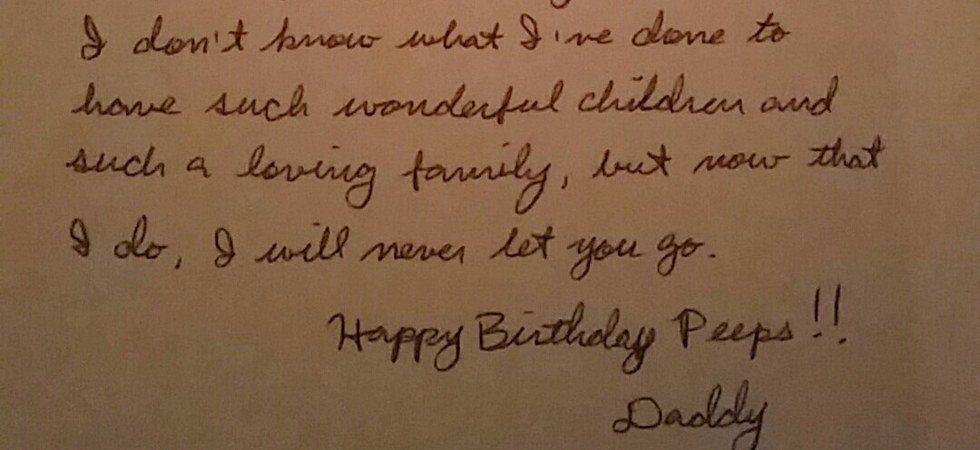 I don't know what I've done to
have such wonderful children and
such a loving family, but now that
I do, I will never let you go.
Happy Birthday Peeps!!
Daddy